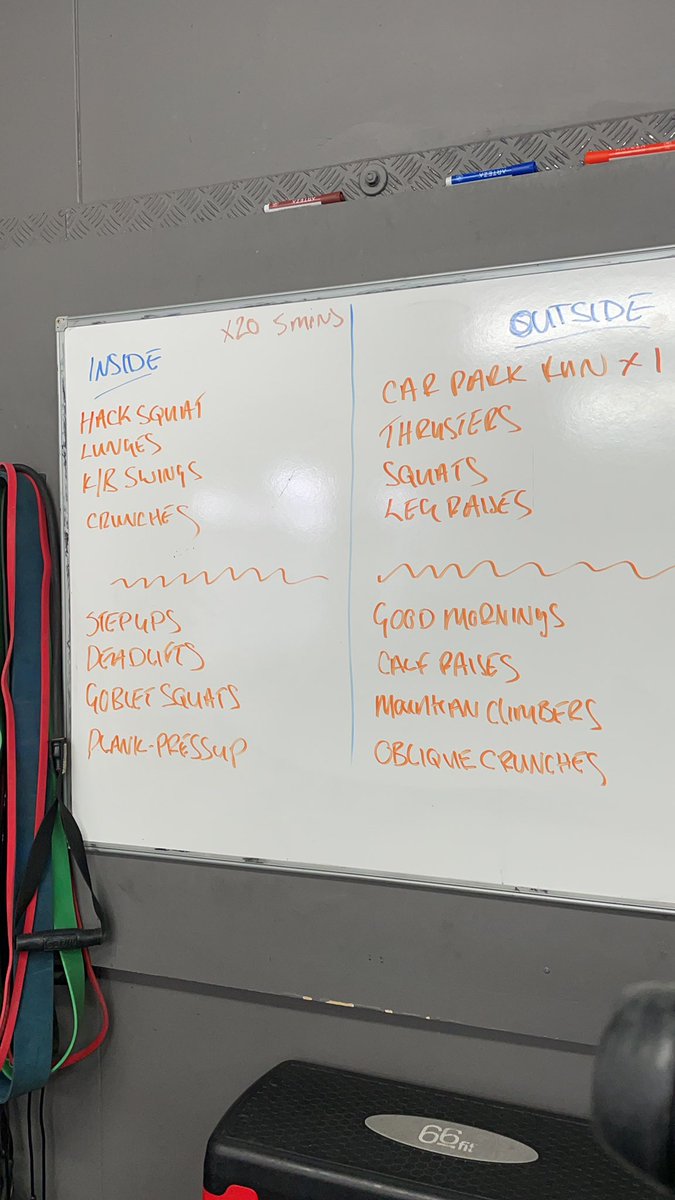 x20 5 MINS
INSIDE
HACK SQUAT
LUNGES
K/B SWINGS
CRUNCHES
STEP UPS
DEADLIFTS
GOBLET SQUATS
PLANK-PRESSUP
OUTSIDE
CAR PARK RUN x 1
THRUSTERS
SQUATS
LEG RAISES
GOOD MORNINGS
CALF RAISES
MOUNTAIN CLIMBERS
OBLIQUE CRUNCHES
ARTEZA
ARTEZA
66fit